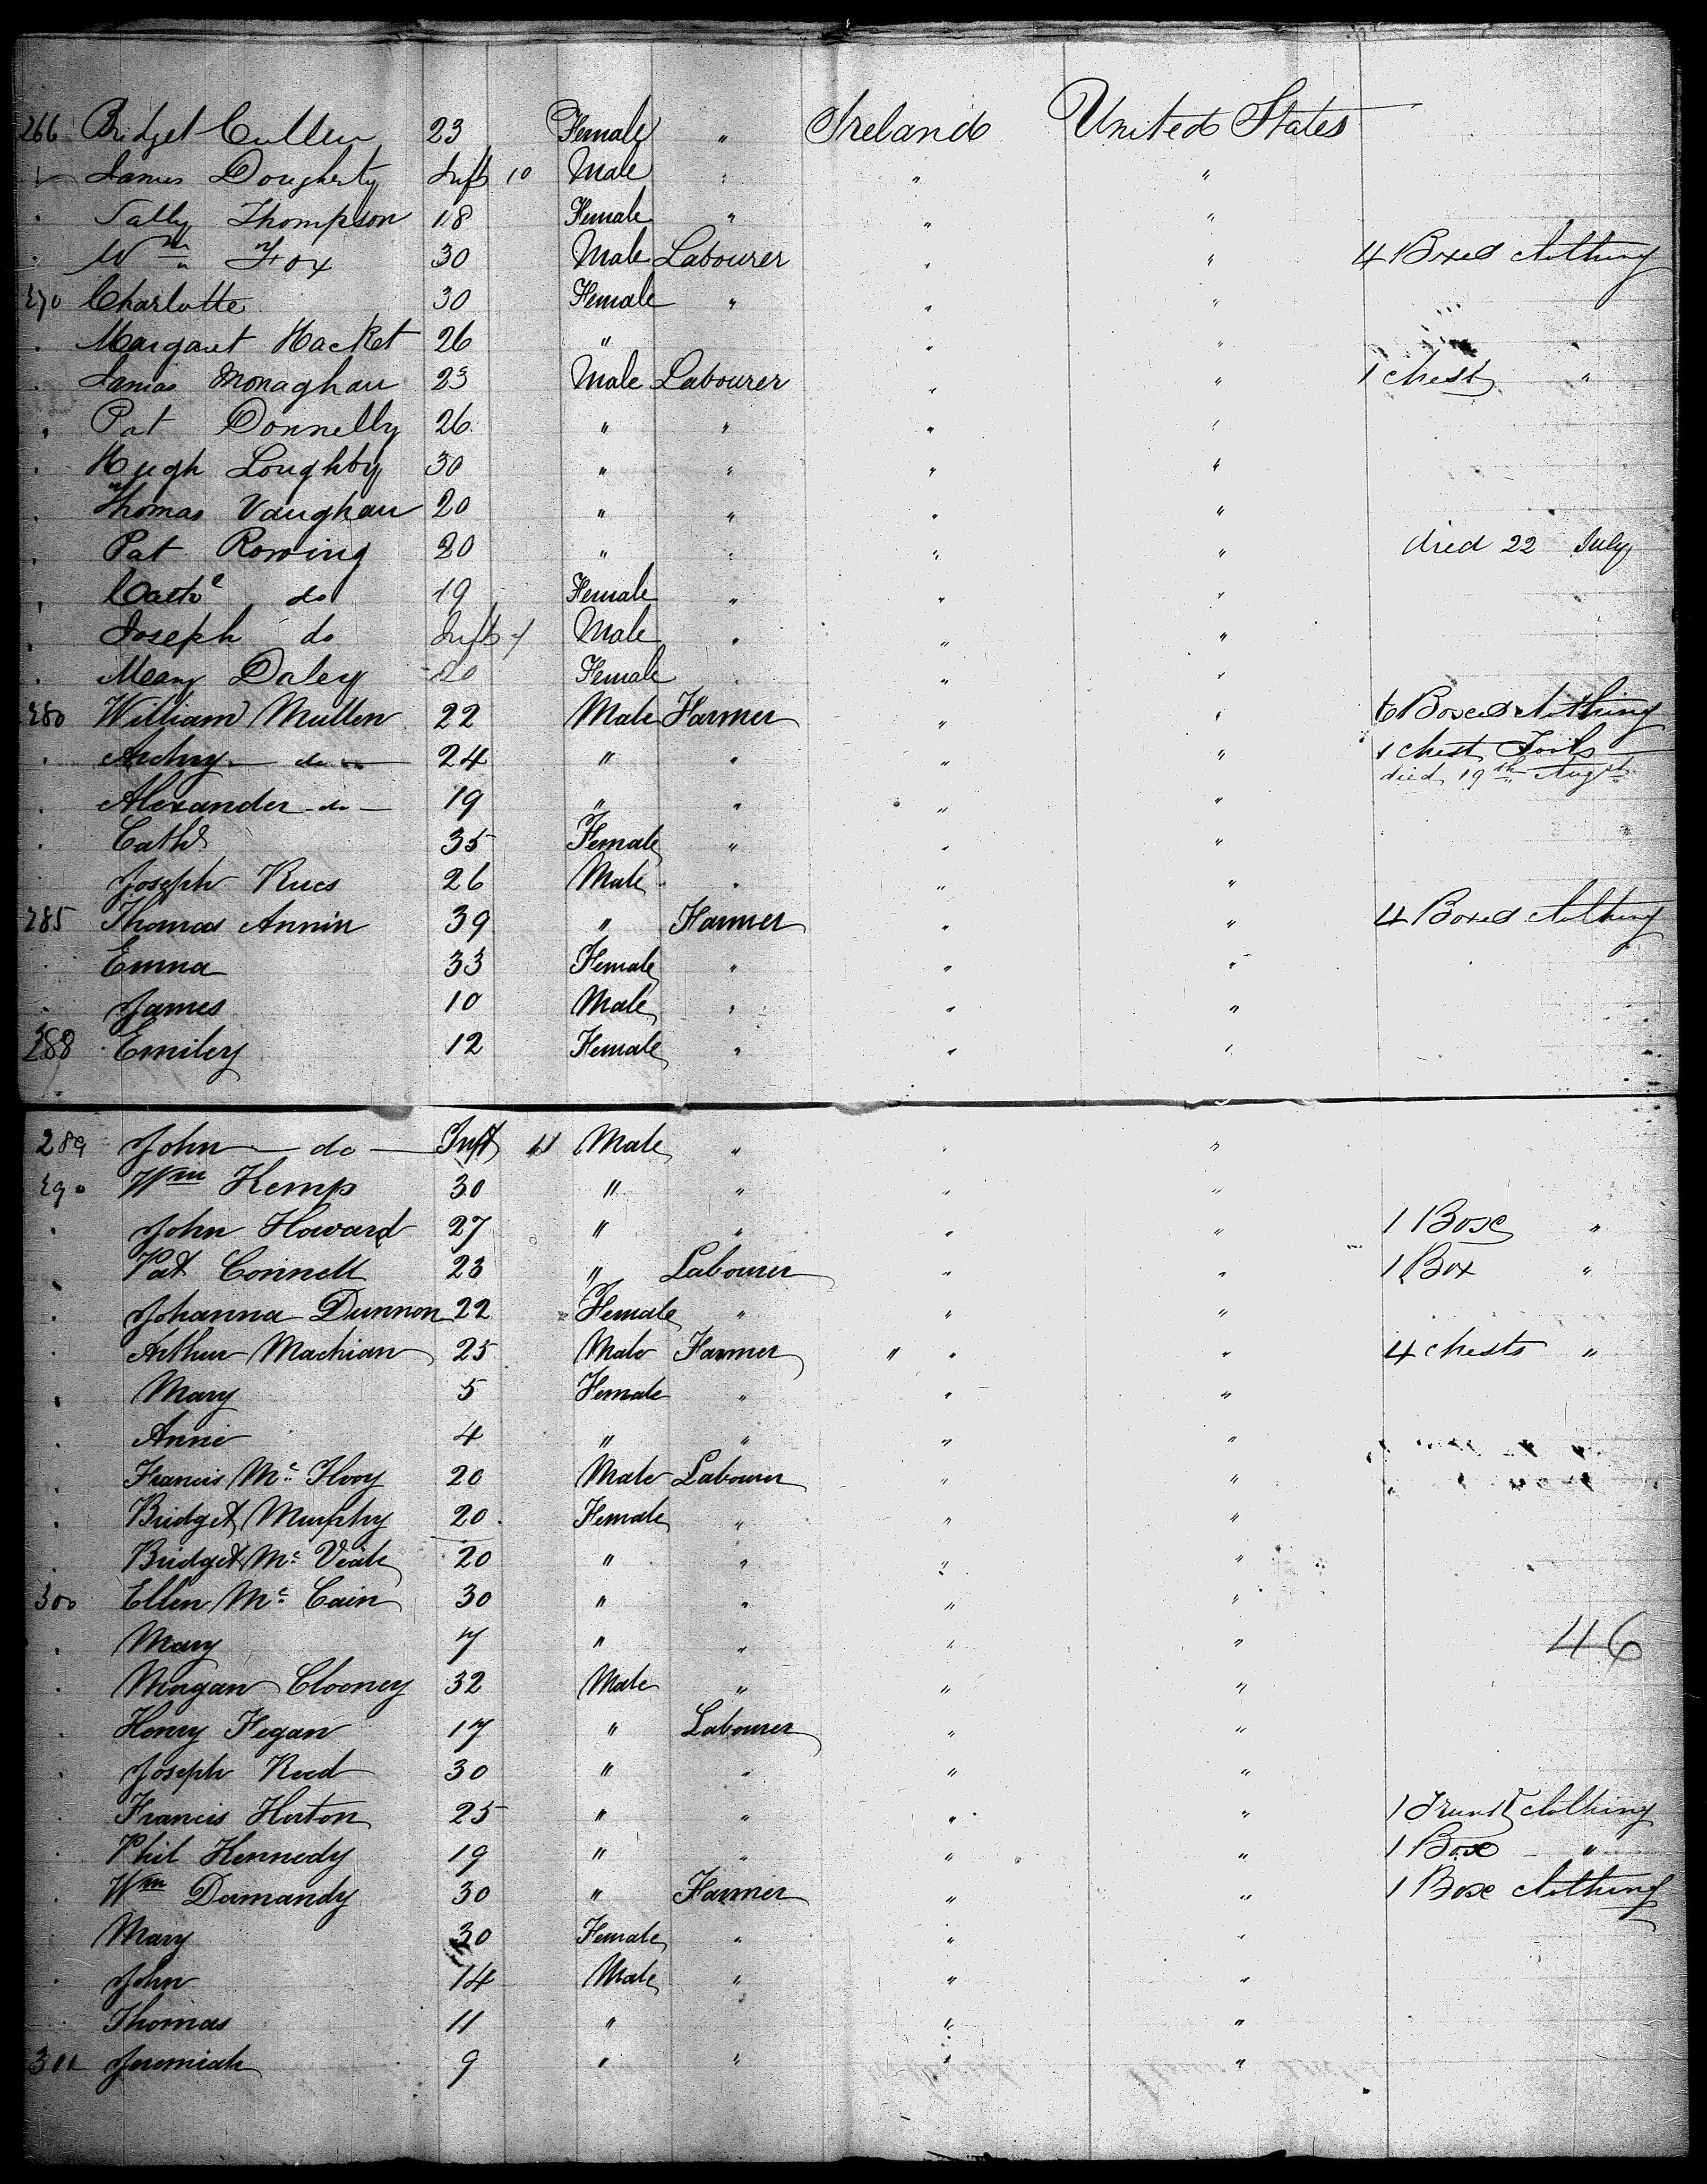 266 Bridget Cullen 23 Female " Ireland United States
" James Dougherty Inft 10 Male " " "
" Sally Thompson 18 Female " " "
" Wm Fox 30 Male Labourer " " 4 Boxes Clothing
270 Charlotte 30 Female " " "
" Margaret Hacket 26 " " "
" James Monaghan 23 Male Labourer " " 1 Chest "
" Pat Donnelly 26 " " " "
" Hugh Loughby 30 " " " "
" Thomas Vaughan 20 " " " "
" Pat Rowing 20 " " " " died 22 July
" Cathe do 19 Female " " "
" Joseph do Inft Male " " "
" Mary Daley 20 Female " " "
280 William Mullen 22 Male Farmer " " 6 Boxes Clothing
" do 24 " " " " 1 Chest Tools
died 19th Augst
" Alexander do 19 " " " "
" Cath 35 Female " " "
Joseph 26 Male " " "
285 Thomas Annin 39 " Farmer " " 4 Boxes Clothing
" Emma 33 Female " " "
" James 10 Male " " "
288 Emiley 12 Female " " "
289 John do Inft 11 Male " " "
290 Wm Kemp 30 " " " "
" John Howard 27 " " " " 1 Box "
" Pat Connell 23 " Labourer " " 1 Box "
" Johanna Dunnon 22 Female " " "
" Arthur Machian 25 Male Farmer " " " 4 Chests "
" Mary 5 Female " " "
" Anne 4 " " " "
" Francis Mc Ilvoy 20 Male Labourer " "
" Bridget Murphy 20 Female " " "
" Bridget Mc 20 " " " "
300 Ellen Mc Cain 30 " " " "
" Mary 7 " " " " 46
" Morgan Clooney 32 Male " " "
" Henry Fegan 17 " Labourer " "
" Joseph Reed 30 " " " "
" Francis Horton 25 " " " " 1 Trunk Clothing
" Phil Kennedy 19 " " " " 1 Box "
" Wm Dormandy 30 " Farmer " " 1 Box Clothing
" Mary 30 Female " " "
" John 14 Male " " "
" Thomas 11 " " "
311 Jeremiah 9 " " " "